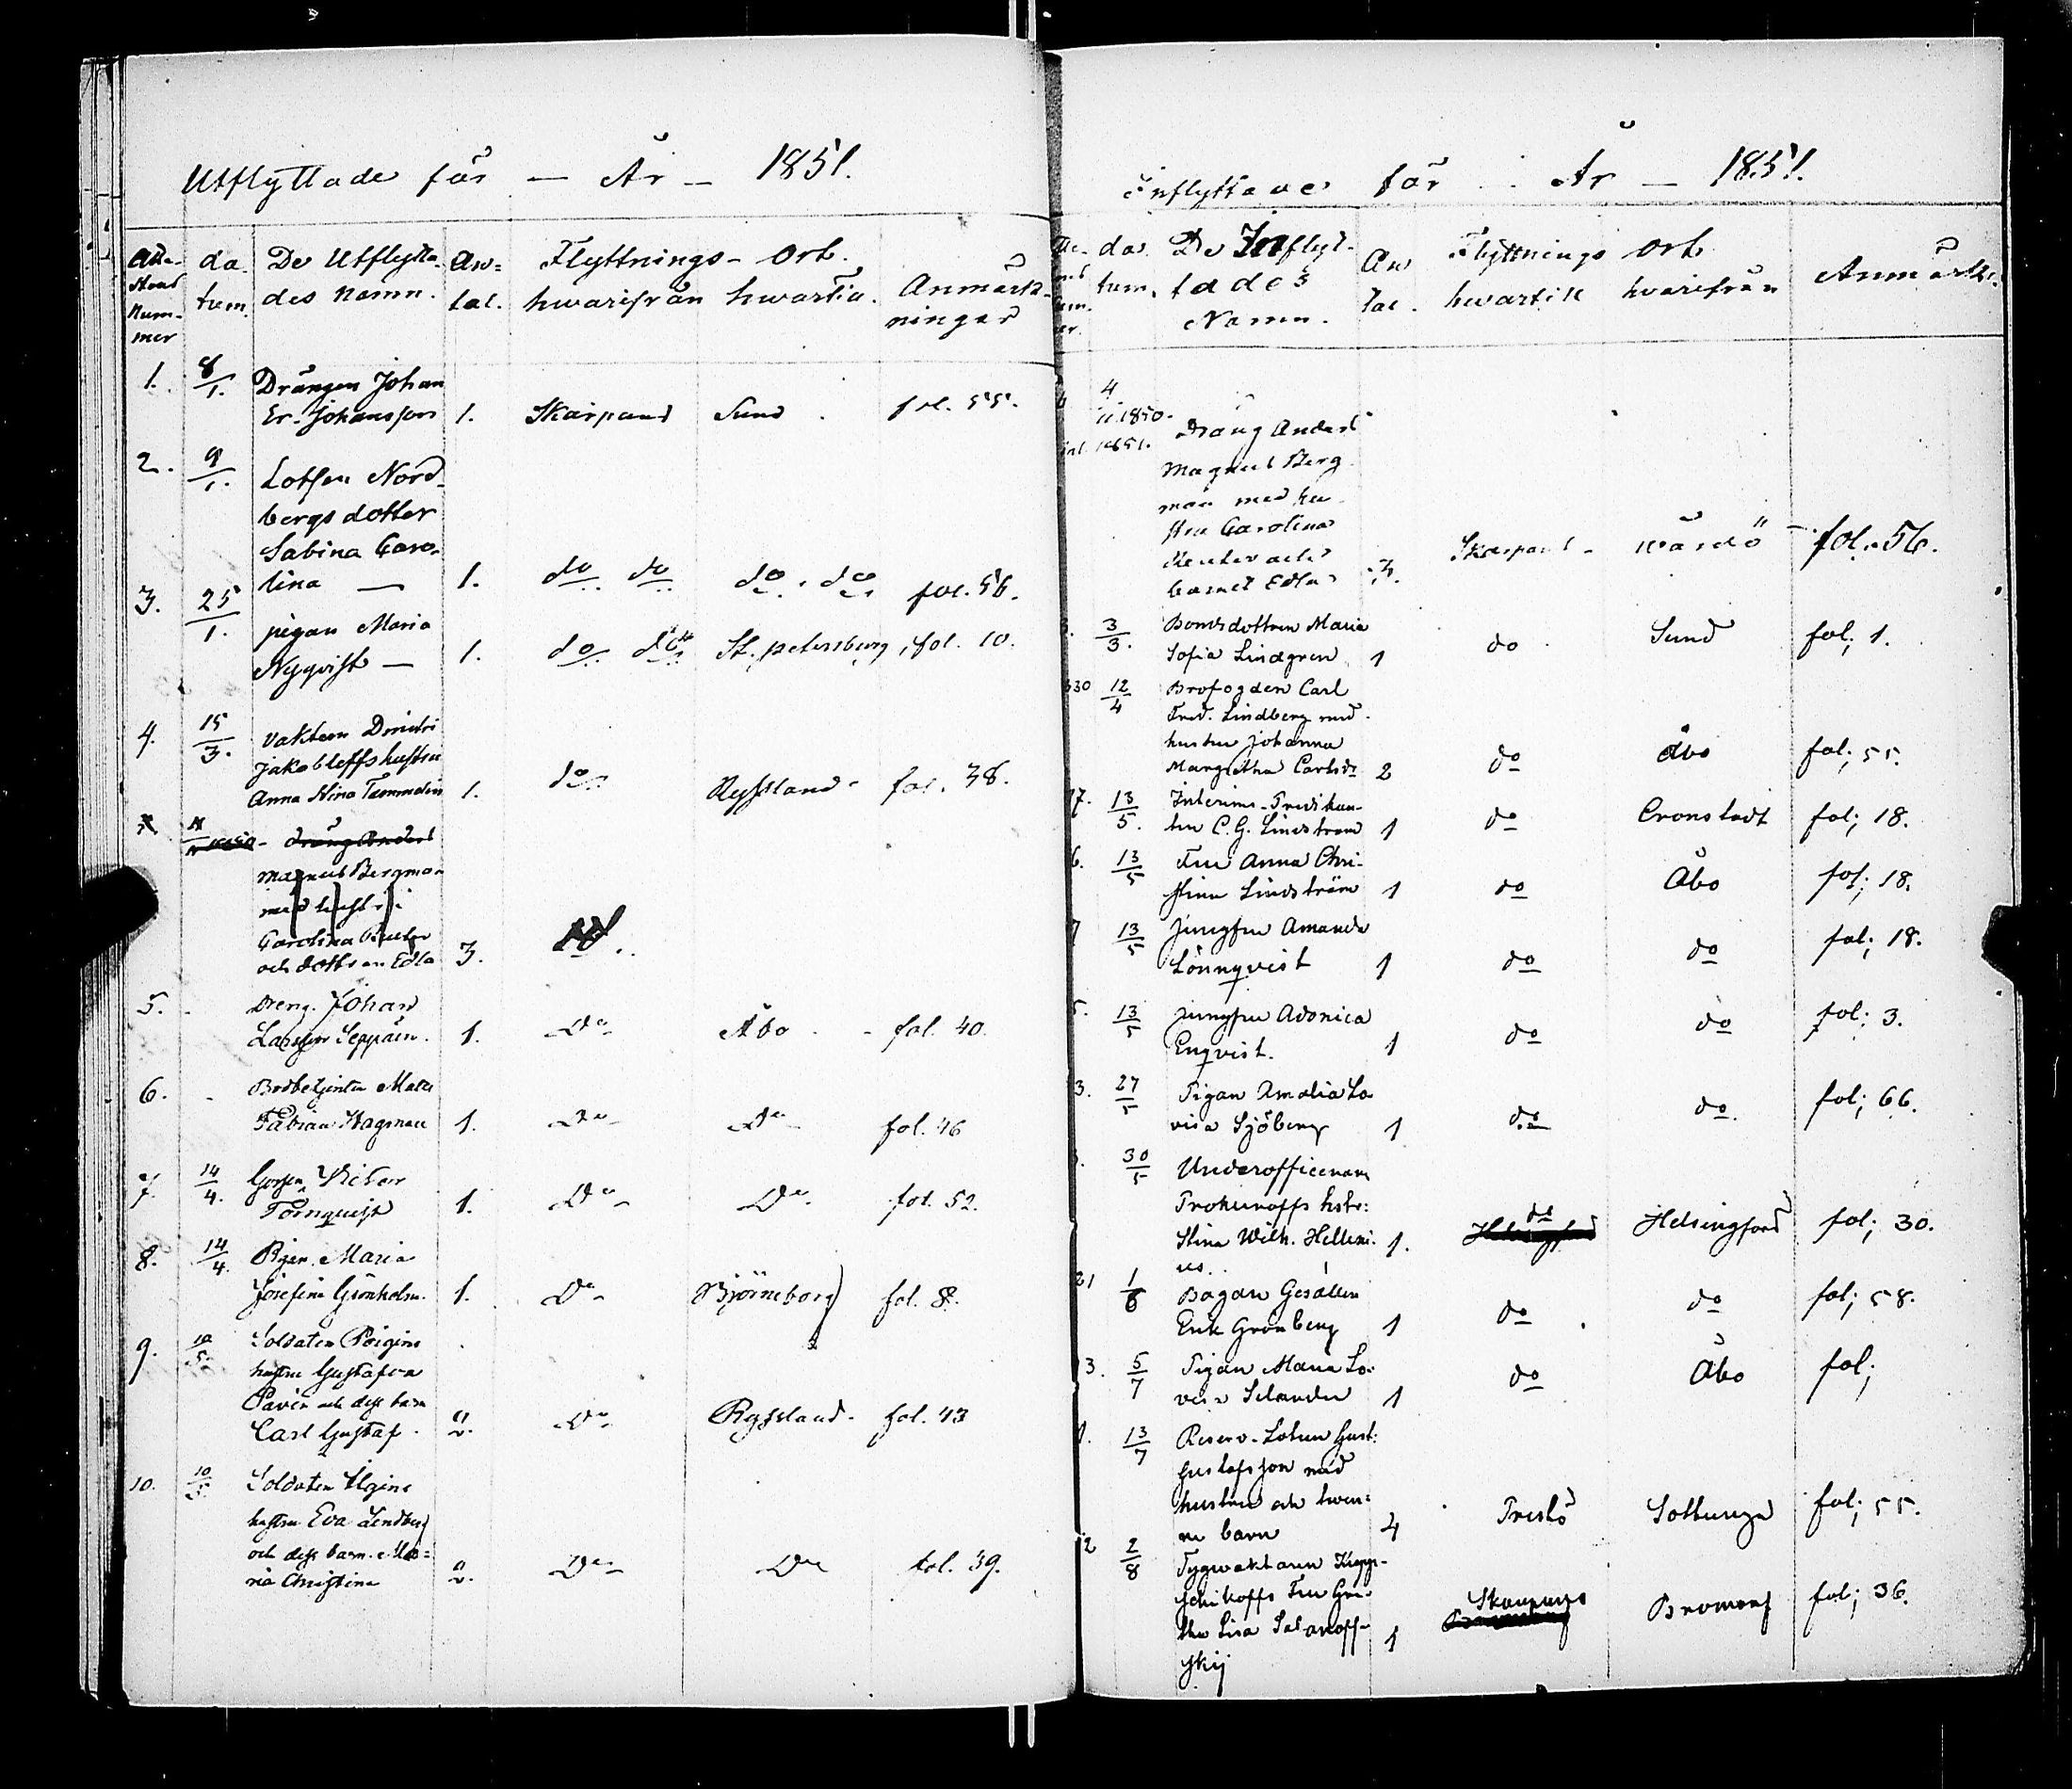 Utflyttade för — År — 1851.
Atte-
stens
Num-
mer
da
tum.
De Utflytta-
des namn.
An-
tal.
Flyttnings- Ort.
hwarifrån hwartill.
Anmärk-
ningar
1. 8/1. Drängen Johan
Er. Johansson 1. Skarpans Sund. fol. 55.
2. 9/1. Lotsen Nord-
bergs dotter
Sabina Caro-
lina — 1. do do do. do fol. 56.
3. 25/1. pigan Maria
Nyqvist — 1. do do St. petersburg, fol. 10.
4. 15/3. Vakten Dmitri
Jakobleffs hustru
Anna Stina Tammelin 1. do Ryssland. fol. 38.
dräng Anders
magnus Bergman
med hustru
Carolina Reuter
och dottren Edla 3.
5. Dreng. Johan
Larsson Seppäin. 1. Do Åbo - fol. 40.
6. Matts
Fabian Hagman 1. Do Do fol. 46
7. 14/4. Victor
Törnquist 1. Do Do fol. 52.
8. 14/4. Pigan Maria
Josefina Grönholm. 1. Do Björneborg fol. 8.
9. 10/5. Soldaten
hustru Gustafva
och dess barn
Carl Gustaf. 2. Do Ryssland. fol. 43
10. 10/5. Soldaten
hustru Eva Lindberg
och dess barn Ma=
ria Christina 2. Do Do fol. 39.
Inflyttade för År — 1851.
da
tum.
De Inflyt-
tades
Namn.
An
tal.
Flyttnings Ort
hwartill hvarifrån
Anmärk.
4
11.1850.
1851. Dräng Anders
Magnus Berg
man med hu
stru Carolina
Reuter och
barnet Edla 3. Skarpans - Wårdö - fol. 56.
3/3. Bondsdottren Maria
Sofia Lindgren 1 do Sund fol; 1.
330 12/4 Brofogden Carl
Fred. Lindberg med
hustru Johanna
Margretha Carlsdr 2 do Åbo fol; 55.
17. 13/5. Interims-Predikan-
ten C.G. Lindström 1 do Cronstadt fol; 18.
6. 13/5 Fru Anna Chri-
stina Lindström 1 do Åbo fol; 18.
7 13/5 Jungfru Amanda
Lönnqvist 1 do do fol; 18.
5. 13/5 Jungfru Adonica
Enqvist. 1 do do fol; 3.
3. 27/5 Pigan Amalia Lo
visa Sjöberg 1 do do. fol; 66.
30/5 Underofficeraren
Prokuroffs hstr:
Stina Wilh. Helleni-
us. 1. do Helsingfors fol; 30.
21 1/6 Bagare Gesällen
Erik Grönberg 1 do do fol; 58.
3. 5/7 Pigan Maria Lo-
visa Selander 1 do Åbo fol;
1. 13/7 Reserv-Lotsen Gust:
Gustafsson med
hustru och twen-
ne barn 4 Prestö Sottunga fol; 55.
2 2/8 Tygwaktaren
Fru Gre-
tha Lisa
skij 1 Skarpans Bromarf fol; 36.